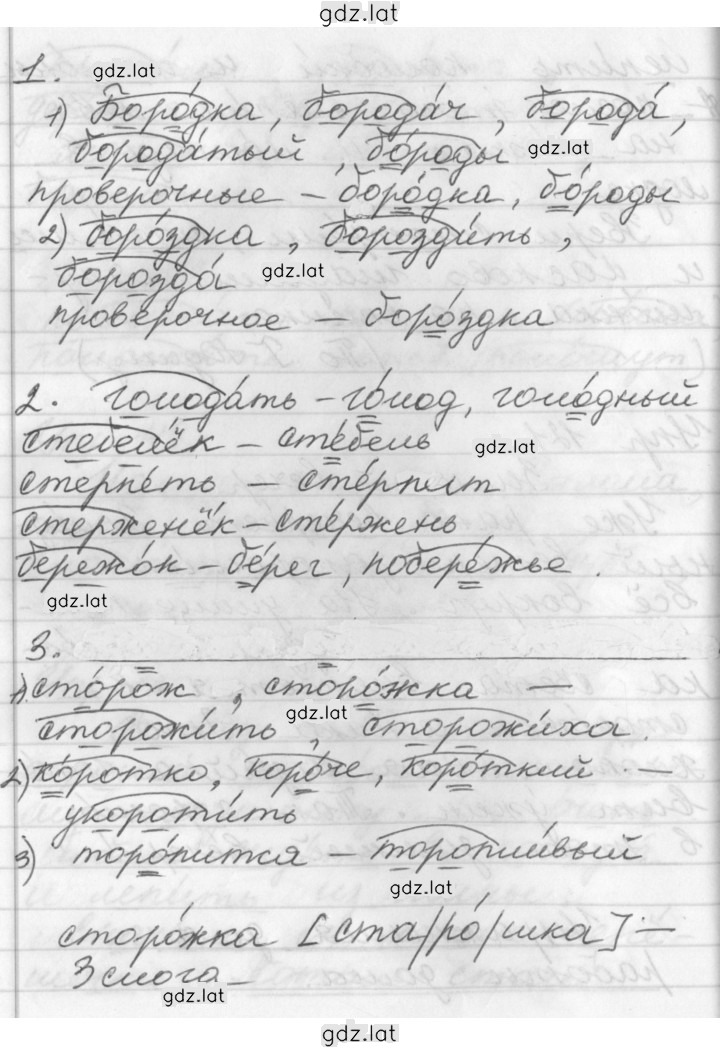 gdz.lat
1. gdz.lat
1) Боро́дка, борода́ч, борода́,
борода́тый, бо́роды gdz.lat
проверочные – боро́дка, бо́роды
2) боро́здка, борозди́ть,
борозда́ gdz.lat
проверочное – боро́здка
2. голода́ть – го́лод, голо́дный
стебелёк – сте́бель gdz.lat
стерпе́ть – сте́рпит
стерженёк – сте́ржень
бережо́к – бе́рег, побере́жье.
gdz.lat
3.
1) сто́рож, сторо́жка –
сторожи́ть, gdz.lat сторожи́ха.
2) ко́ротко, коро́че, коро́ткий –
укороти́ть
3) торо́пится – торопли́вый
gdz.lat
сторо́жка [ста/ро́/шка] –
3 слога –
gdz.lat
gdz.lat